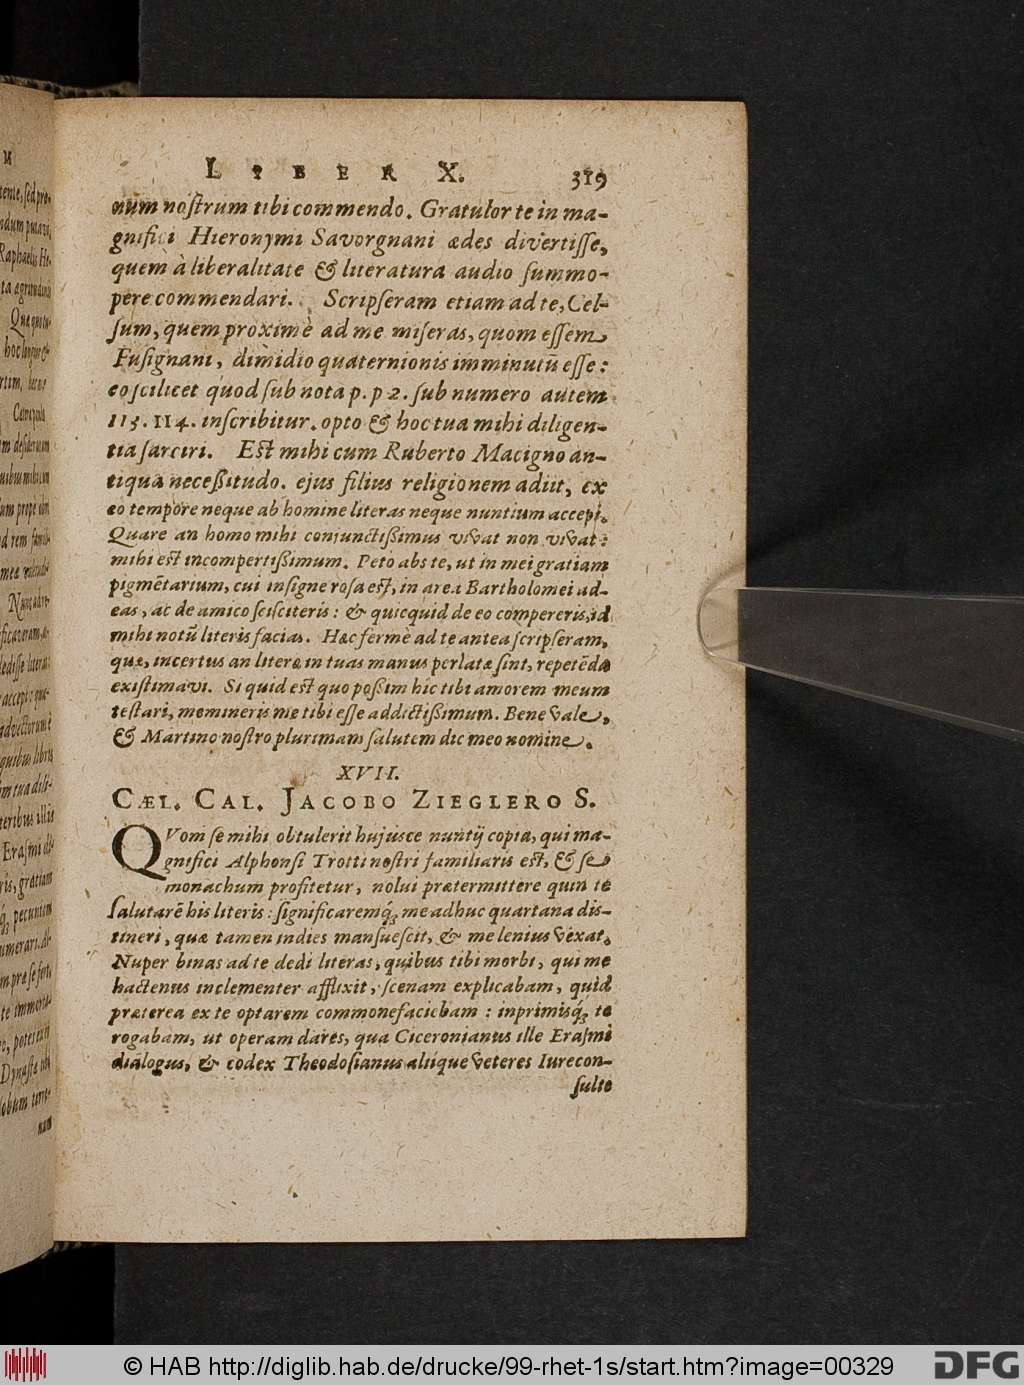 LIBER X. 319
num nostrum tibi commendo. Gratulor te in ma-
gnifici Hieronymi Savorgnani ædes divertisse,
quem à liberalitate & literatura audio summo-
pere commendari. Scripseram etiam ad te, Cel-
sum, quem proximè ad me miseras, quom essem
Fusignani, dimidio quaternionis imminutũ esse:
eo scilicet quod sub nota p. p 2. sub numero autem
113. 114. inscribitur. opto & hoc tua mihi diligen-
tia sarciri. Est mihi cum Ruberto Macigno an-
tiqua necessitudo. ejus filius religionem adiit, ex
eo tempore neque ab homine literas neque nuntium accepi.
Quare an homo mihi conjunctissimus vivat non vivat:
mihi est incompertissimum. Peto abs te, ut in mei gratiam
pigmẽtarium, cui insigne rosa est, in area Bartholomei ad-
eas, ac de amico scisciteris: & quicquid de eo compereris, id
mihi notũ literis facias. Hæc fermè ad te antea scripseram,
quæ, incertus an literæ in tuas manus perlatæ sint, repetẽda
existimavi. Si quid est quo possim hic tibi amorem meum
testari, memineris me tibi esse addictissimum. Bene vale,
& Martino nostro plurimam salutem dic meo nomine.
XVII.
CÆL. CAL. JACOBO ZIEGLERO S.
QVom se mihi obtulerit hujusce nuntij copia, qui ma-
gnifici Alphonsi Trotti nostri familiaris est, & se
monachum profitetur, nolui prætermittere quin te
salutarẽ his literis: significaremq́; me adhuc quartana dis-
tineri, quæ tamen indies mansuescit, & me lenius vexat.
Nuper binas ad te dedi literas, quibus tibi morbi, qui me
hactenus inclementer afflixit, scenam explicabam, quid
præterea ex te optarem commonefaciebam: inprimisq́; te
rogabam, ut operam dares, qua Ciceronianus ille Erasmi
dialogus, & codex Theodosianus aliique veteres Iurecon-
sulti
© HAB http://diglib.hab.de/drucke/99-rhet-1s/start.htm?image=00329
DFG